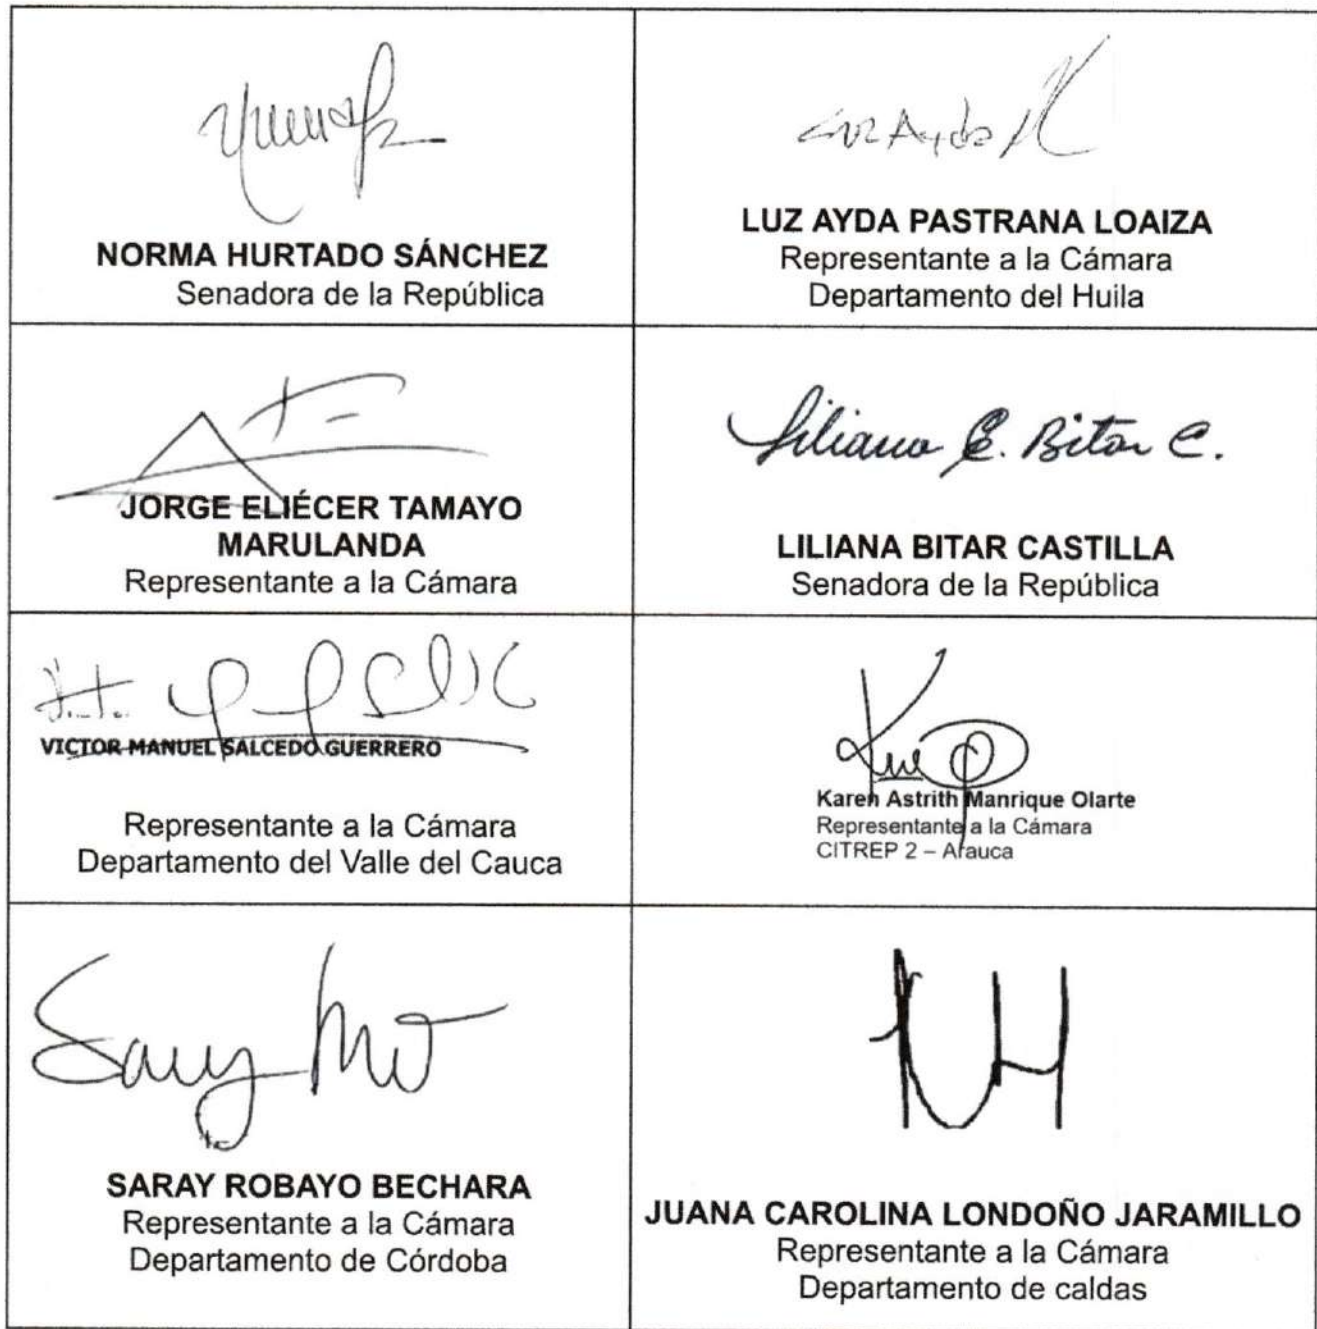 NORMA HURTADO SÁNCHEZ
Senadora de la República
Luz Ayda
LUZ AYDA PASTRANA LOAIZA
Representante a la Cámara
Departamento del Huila
JORGE ELIÉCER TAMAYO
MARULANDA
Representante a la Cámara
Liliana E. Bitar C.
LILIANA BITAR CASTILLA
Senadora de la República
VICTOR MANUEL SALCEDO GUERRERO
Representante a la Cámara
Departamento del Valle del Cauca
Karen Astrith Manrique Olarte
Representante a la Cámara
CITREP 2 – Arauca
SARAY ROBAYO BECHARA
Representante a la Cámara
Departamento de Córdoba
JUANA CAROLINA LONDOÑO JARAMILLO
Representante a la Cámara
Departamento de caldas